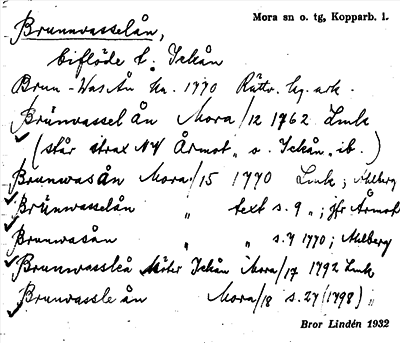 Mora sn o. tg, Kopparb. l.
Brunnvasselån,
biflöde t. Ickån
Brun-Was Ån Ka. 1770 Rättv. hg. ark.
Brúnvassel ån Mora/12 1762 Link
(står strax NV Årmot „ o. Ickån „ ib.)
Brunwasån Mora/15 1770 Link; Ahlberg
Brúnwasselån „ text s. 9 „; jfr Årmot
Brunwasån „ „ s. 7 1770; Ahlberg
Brunwassleå Möter Ickån Mora/17 1792 Link
Brunvassle ån Mora/18 s. 27 (1798) „
Bror Lindén 1932